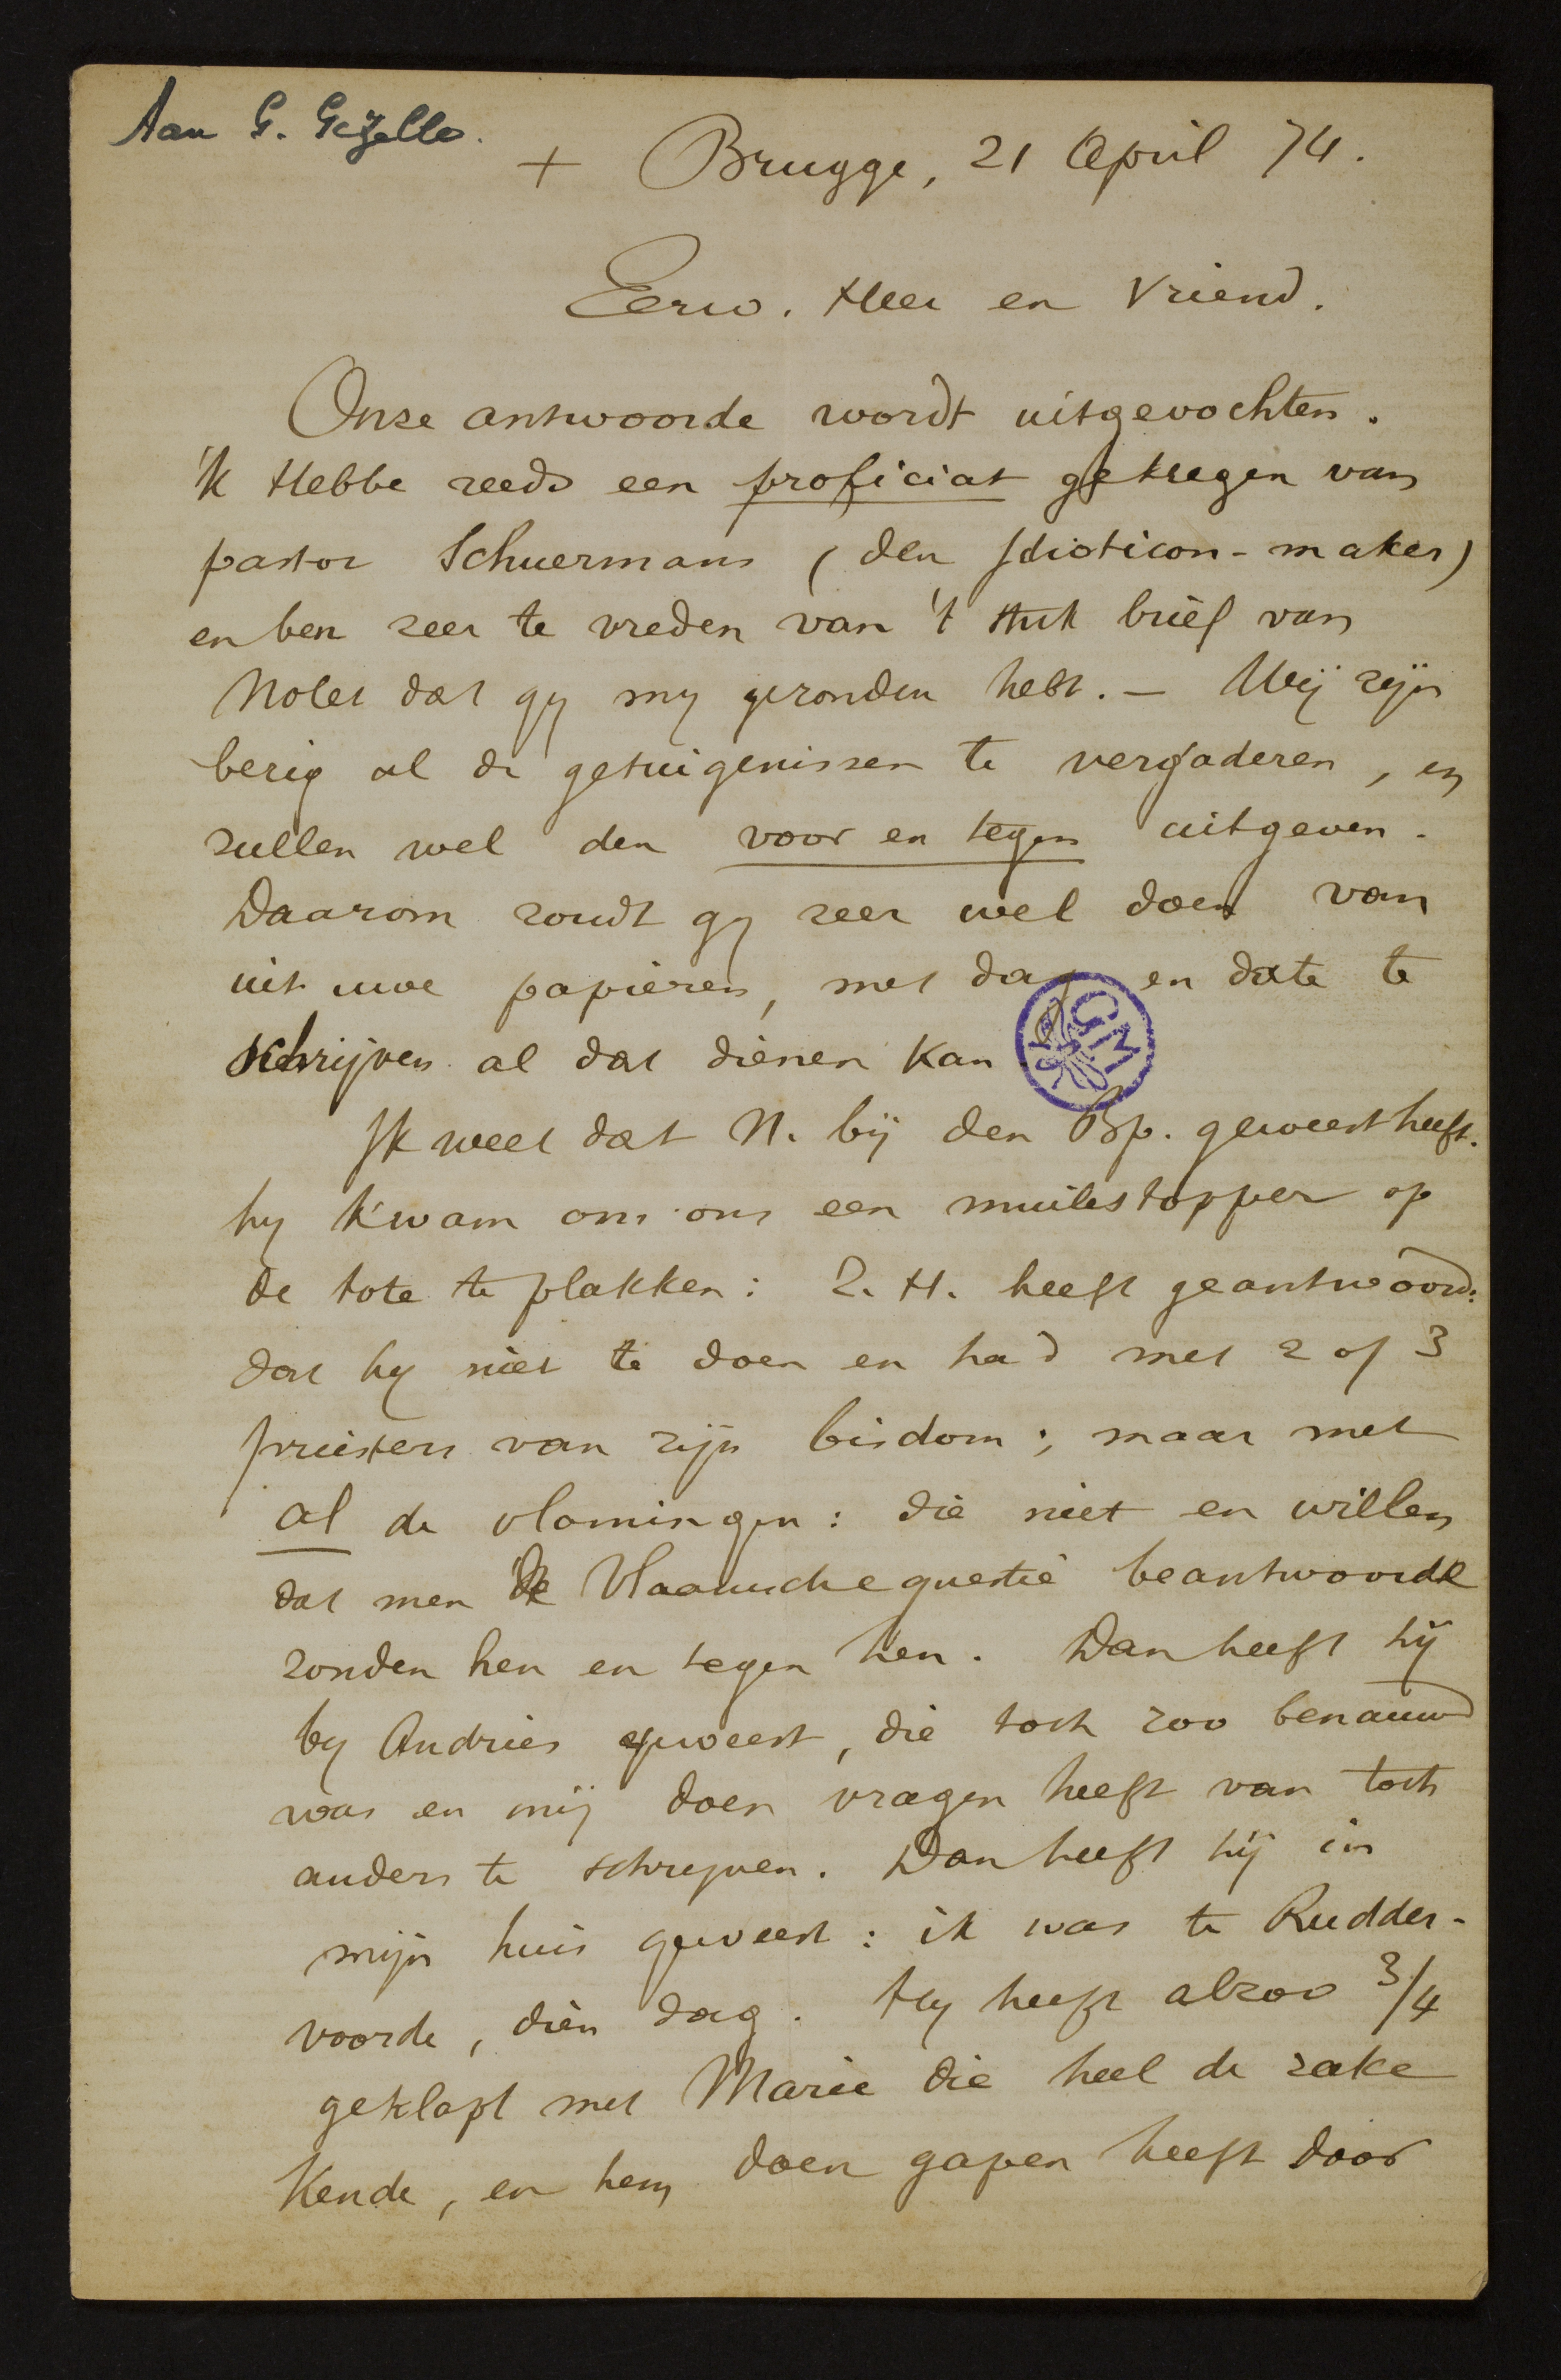 Aan G. Gezelle.
+ Brugge, 21 April 74.
Eerw. Heer en Vriend.
Onze antwoorde wordt uitgevochten.
'k Hebbe reeds een proficiat gekregen van
pastor Schuermans (den Idioticon-maker)
en ben zeer te vreden van 't stuk brief van
Nolet dat gy my gezonden hebt. — Wij zijn
bezig al de getuigenissen te vergaderen, en
zullen wel den voor en tegen uitgeven.
Daarom zoudt gy zeer wel doen van
uit uwe papieren, met dag en date te
schrijven al dat dienen kan
GM
Ik weet dat N. bij den Bp. geweest heeft.
hy kwam om ons een muilestopper op
de tote te plakken: Z. H. heeft geantwoord:
dat hy niet te doen en had met 2 of 3
priesters van zijn bisdom; maar met
al de vlamingen: die niet en willen
dat men de Vlaamsche questie beantwoorde
zonden hen en tegen hen. Dan heeft hij
by Andries geweest, die toch zoo benauwd
was en mij doen vragen heeft van toch
anders te schryven. Dan heeft hij in
mijn huis geweest: ik was te Rudder-
voorde, dien dag. Hy heeft alzoo 3/4
geklapt met Marie die heel de zake
kende, en hem doen gapen heeft door